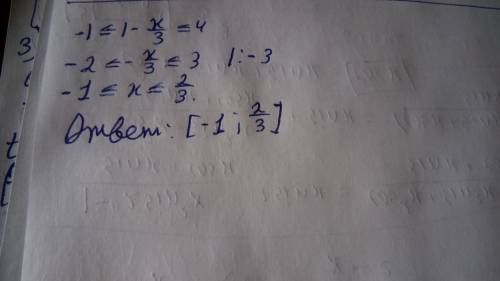 -1 ≤ 1 - x/3 = 4
-2 ≤ - x/3 ≤ 3 | : -3
-1 ≤ x ≤ 2/3.
Ответ: [-1; 2/3]